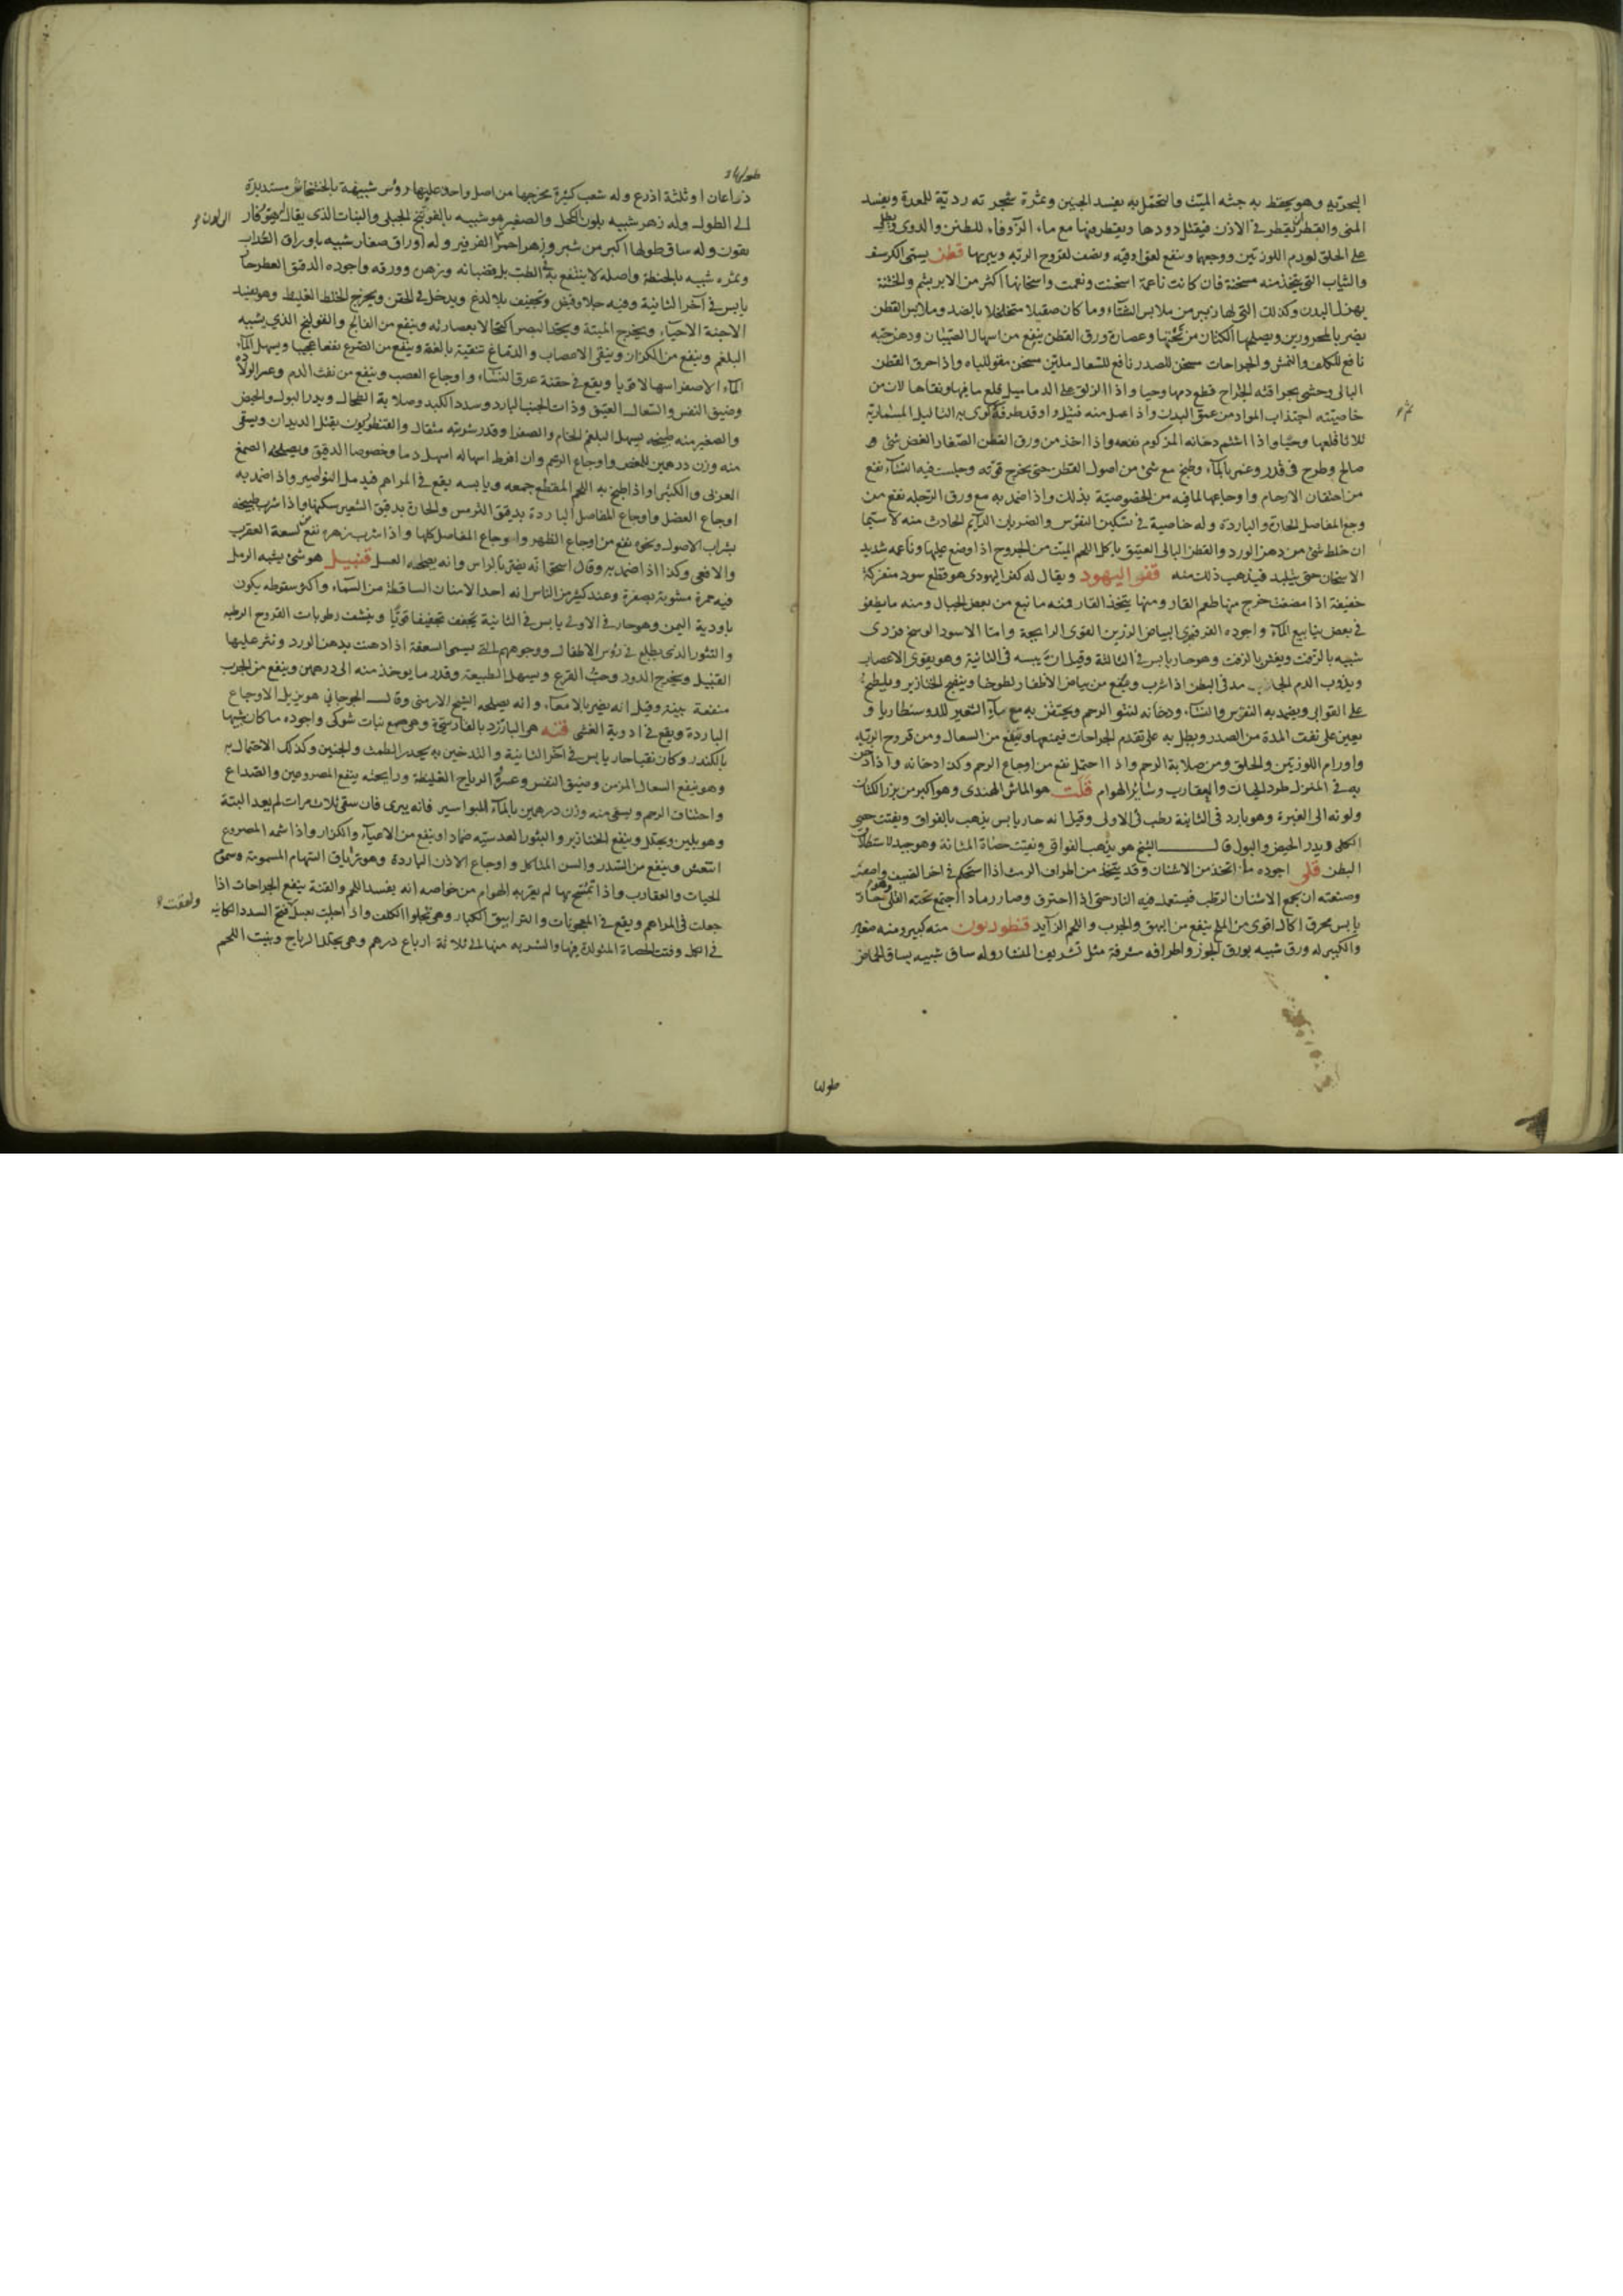 البحرتيه وهو يحفظ به جثه الميت والتحمل به يفسد الجنين وثمرة شجرته ردية للمعدة ويفسد
المنى والقطران يقطر فى الاذن فيقتل دودها ويقطر فيها مع ماء الزوفاء للطنين والدوى ويطلى
على الحلق لورم اللوزتين ووجعها وينفع لعق اوقيه ونصف لقروح الرئه ويبريها قطن يسمى الكرسف
والثياب التى يتخذ منه مسخنة فان كانت ناعمة اسخنت ونعمت واسخانها اكثر من الابريشم والخشنة
يهزل البدن وكذلك التى لها زئبر من ملابس الشتاء وما كان صقيلا متخلخلا بالضد وملابس القطن
يضر بالمحرورين ويصلحها الكتان من تحتها وعصارة ورق القطن ينفع من اسهال الصبيان ودهن حبه
نافع للكلف والنمش والجراحات مسخن للصدر نافع للسعال ملين مسخن مقو للباه واذا احرق القطن
البالى وحشى بحراقته الجراح قطع دمها وحيا واذا الزق على الدماميل قلع ما فيها ونقاها لان من
خاصيته اجتذاب المواد من عمق البدن واذا عمل منه فتيل واوقد طرفه وكوى به الثاليل المسمارية
ثلاثا قلعها وحيا واذا اشتم دخانه المزكوم نفعه واذا اخذ من ورق القطن الصغار الغض شئ
صالح وطرح فى قدر وغمر بالماء وطبخ مع شئ من اصول القطن حتى يخرج قوته وجلست فيه النساء نفع
من اختناق الارحام واوجاعها لما فيه من الخصوصية بذلك واذا ضمد به مع ورق الرجله نفع من
وجع المفاصل الحارة والباردة وله خاصية فى تسكين النقرس والضربان الدايم الحادث منه لا سيما
ان خلط شئ من دهن الورد والقطن البالى العتيق ياكل اللحم الميت من الجروح اذا وضع عليها وناعمه شديد
الاسخان حتى يتلبد فيذهب ذلك منه قفر اليهود ويقال له كفر اليهودى هو قطع سود متفركة
خفيفة اذا مضغت خرج منها طعم القار ومنها يتخذ القار فمنه ما نبع من بعض الجبال ومنه ما يطفو
فى بعض ينابيع الماء واجوده الفرفيرى البياض الرزين القوى الرايحة واما الاسود الوسخ فردى
شبيه بالزفت ويغش بالزفت وهو حار يابس فى الثالثة وقيل ان يبسه فى الثانية وهو يقوى الاعصاب
ويذوب الدم الجامد فى البطن اذا شرب وينفع من بياض الاظفار لطوخا وينضج الخنازير ويلطخ
على القوابى ويضمد به النقرس والنساء ودخانه لنتو الرحم ويحتقن به مع ماء الشعير للدوسنطاريا و
يعين على نفث المدة من الصدر ويطلى به على تقدم الجراحات فيمنعها وينفع من السعال ومن قروح الرئه
واورام اللوزتين والحلق ومن صلابة الرحم واذا احتمل نفع من اوجاع الرحم وكذا دخانه واذا دخن
به فى المنزل طرد الحيات والعقارب وسائر الهوام قلت هو الماش الهندى وهو اكبر من بزر الكتان
ولونه الى الغبرة وهو بارد فى الثانية رطب فى الاولى وقيل انه حار يابس يذهب بالفواق ويفتت حصى
الكلى ويدر الحيض والبول قال الشيخ هو يذهب الفواق ويفتت حصاة المثانة وهو جيد لاستطلاق
البطن قلى اجوده ما اتخذ من الاشنان وقد يتخذ من اطراف الرمث اذا استحكم فى اخر الصيف واصفر
وصنعته ان يجمع الاشنان الرطب فيستعمل فيه النار حتى اذا احترق وصار رمادا اجتمع تحته القلى وهو حار
يابس محرق اكال اقوى من الملح ينفع من البهق والجرب واللحم الزايد قنطوريون منه كبير ومنه صغير
والكبير له ورق شبيه بورق الجوز واطرافه مشرفة مثل تشريف المنشار وله ساق شبيه بساق الحماض
طولها
طولها
ذراعان او ثلثة اذرع وله شعب كثيرة مخرجها من اصل واحد عليها رؤس شبيهة بالخشخاش مستديرة
الى الطول وله زهر شبيه بلون الكحل والصغير هو شبيه بالفوتنج الجبلى والنبات الذى يقال له
وله ساق طولها اكبر من شبر وزهر احمر الى الفرفير وله اوراق صغار شبيه باوراق السداب
وثمره شبيه بالحنطة واصله لا ينتفع به فى الطب بل بقضبانه وزهره وورقه واجوده الدقيق العطر حار
يابس فى آخر الثانية وفيه جلا وقبض وتجفيف بلا لذع ويدخل فى الحقن ويخرج الخلط الغليظ وهو يفسد
الاجنة الاحياء ويخرج الميتة ويحد البصر اكتحالا بعصارته وينفع من الفالج والقولنج الذى يشبه
البلغم وينفع من الكزاز وينقى الاعصاب والدماغ تنقية بالغة وينفع من الصرع نفعا عجيبا ويسهل الماء
الماء الاصفر اسهالا قويا ويقع فى حقنة عرق النساء واوجاع العصب وينفع من نفث الدم وعسر الولاده
وضيق النفس والسعال العتيق وذات الجنب البارد وسدد الكبد وصلابة الطحال ويدر البول والحيض
والصغير منه طبيخه يسهل البلغم الخام والصفرا وقدر شربته مثقال والقنطوريون يقتل الديدان ويسقى
منه وزن درهمين للمغص واوجاع الرحم وان افرط اسهاله اسهل دما وخصوصا الدقيق ويصلحه الصمغ
العربى والكثيرا واذا طبخ به اللحم المقطع جمعه ويابسه يقع فى المراهم فيدمل النواصير واذا ضمد به
اوجاع العضل واوجاع المفاصل الباردة بدقيق الترمس والحارة بدقيق الشعير سكنها واذا شرب طبيخه
بشراب الاصول ونحوه نفع من اوجاع الظهر واوجاع المفاصل كلها واذا شرب زهره نفع من لسعة العقرب
والافعى وكذا اذا ضمد به وقال اسحق انه يضر بالراس وانه يصلحه العسل قنبيل هو شئ يشبه الرمل
فيه حمرة مشوبة بصفرة وعند كثير من الناس انه احد الامنان الساقطة من السماء واكثر سقوطه يكون
باودية اليمن وهو حار فى الاولى يابس فى الثانية يجفف تجفيفا قويا وينشف رطوبات القروح الرطبه
والبثور الذى يطلع فى رؤس الاطفال ووجوههم التى يسمى السعفة اذا دهنت بدهن الورد ونثر عليها
القنبيل ويخرج الدود وحب القرع ويسهل الطبيعة وقدر ما يوخذ منه الى درهمين وينفع من الجرب
منفعة بينة وقيل انه يضر بالامعاء وانه يصلحه الشيح الارمنى وقال الجرجانى هو يزيل الاوجاع
الباردة ويقع فى ادوية الغشى قنه هو البارزد بالفارسية وهو صمغ نبات شوكى واجوده ما كان شبيها
بالكندر وكان نقيا حار يابس فى آخر الثانية والتدخين به يحدر الطمث والجنين وكذلك الاحتمال به
وهو ينفع السعال المزمن وضيق النفس وعسره الرياح الغليظة ورايحته ينفع المصروعين والصداع
واختناق الرحم ويسقى منه وزن درهمين بالماء للبواسير فانه يبرى فان سقى ثلاث مرات لم يعد البتة
وهو يلين ويحلل وينفع الخنازير والبثور العدسيه ضمادا وينفع من الاعياء والكزاز واذا شمه المصروع
انتعش وينفع من السدر والسن المتاكل واوجاع الاذن الباردة وهو ترياق السهام المسمومة وسموم
الحيات والعقارب واذا تمسح بها لم يقربه الهوام من خواصه انه يفسد اللحم والقنة ينفع الجراحات اذا
جعلت فى المراهم ويقع فى المعجونات والترابيق الكبار وهو تجلوا الكلف واذا بعسل فتح السدد الكاينه
فى الكلى وفتت الحصاة المتولدة فيها والشربه منها الى ثلاثة ارباع درهم وهى يحلل الرياح وينبت اللحم